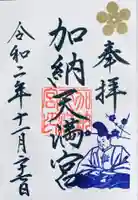 奉拝
加納天満宮
令和二年十一月二十二日